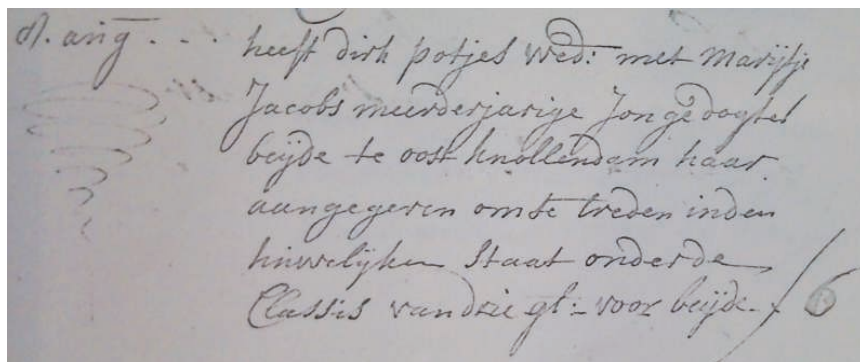 d:o aug . . . heeft dirk potjes wed: met Marijtje
Jacobs meerderjarige Jonge dogter
beijde te oost knollendam haar
aangegeven om te treden in den
huwelijken Staat onder de
Classis van drie gl: voor beijde. / 6